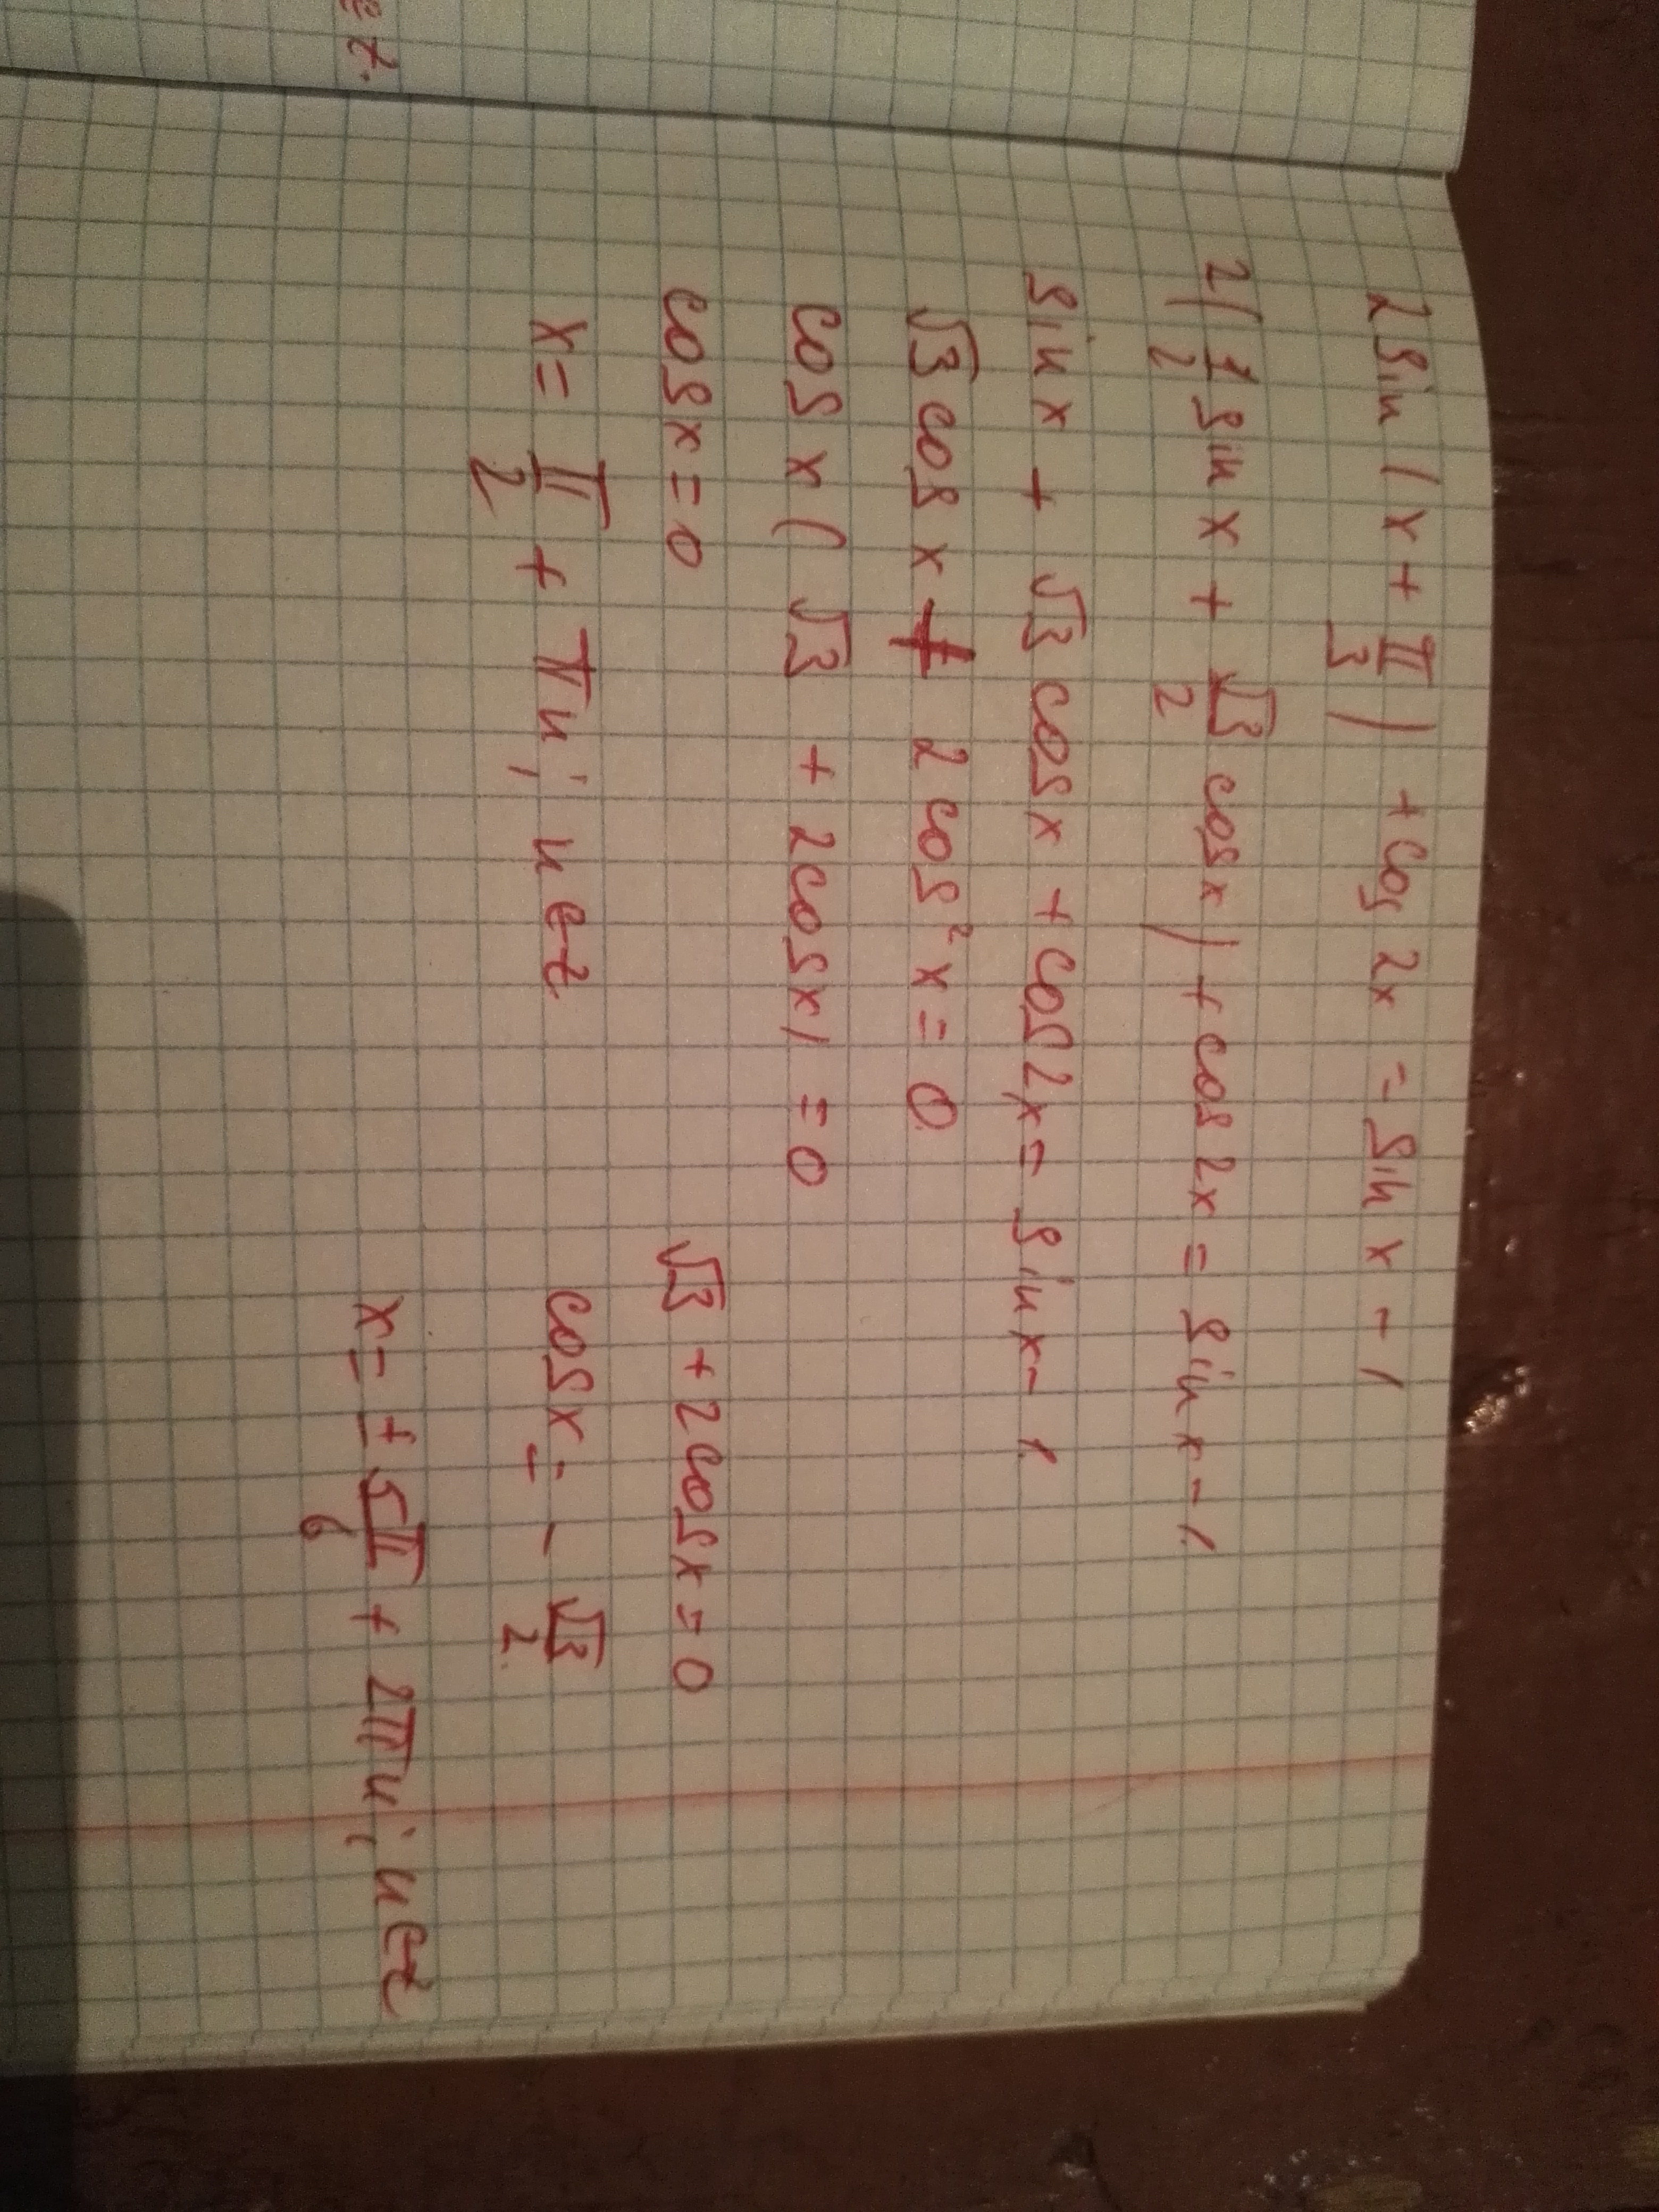 2 sin (x + π/3) + cos 2x = sin x - 1
2(1/2 sin x + √3/2 cos x) + cos 2x = sin x - 1
sin x + √3 cos x + cos 2x = sin x - 1
√3 cos x + 2 cos² x = 0
cos x (√3 + 2 cos x) = 0
cos x = 0 √3 + 2 cos x = 0
x = π/2 + πn; n ∈ Z cos x = - √3/2
x = ± 5π/6 + 2πn; n ∈ Z
∈ Z.